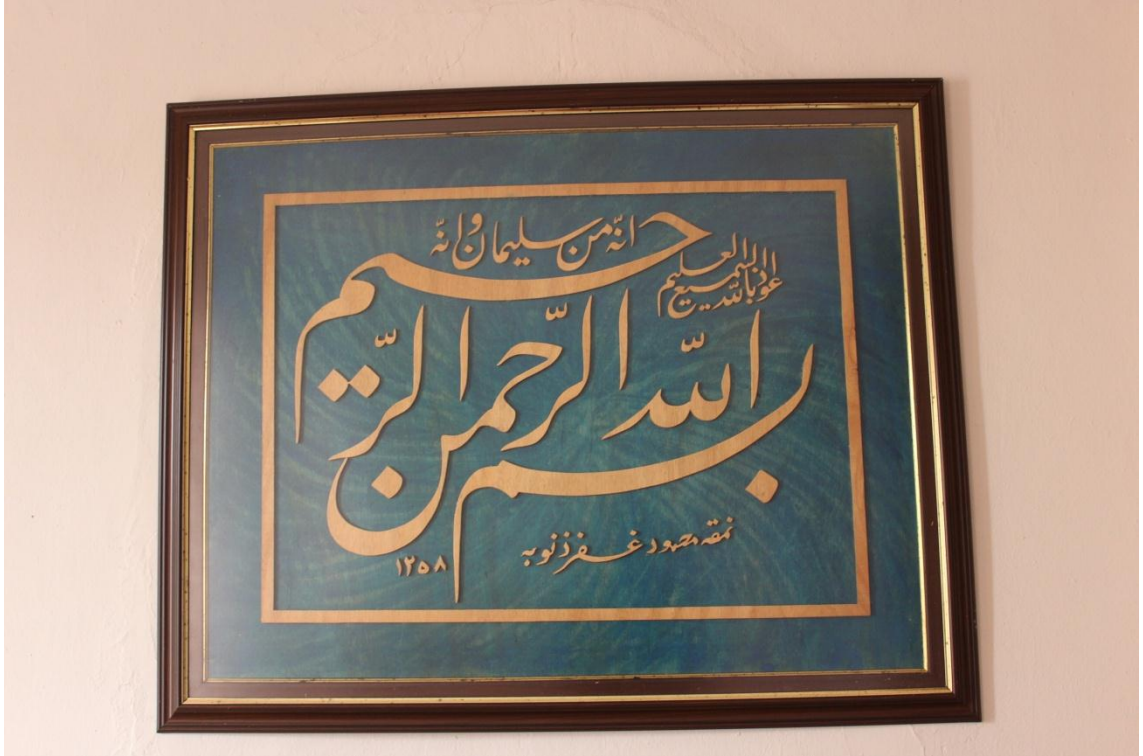 اعوذ بالله السميع العليم
انّه من سليمان وانّه
بسم الله الرّحمن الرّحيم
نمقه محمود غفر ذنوبه
١٢٥٨